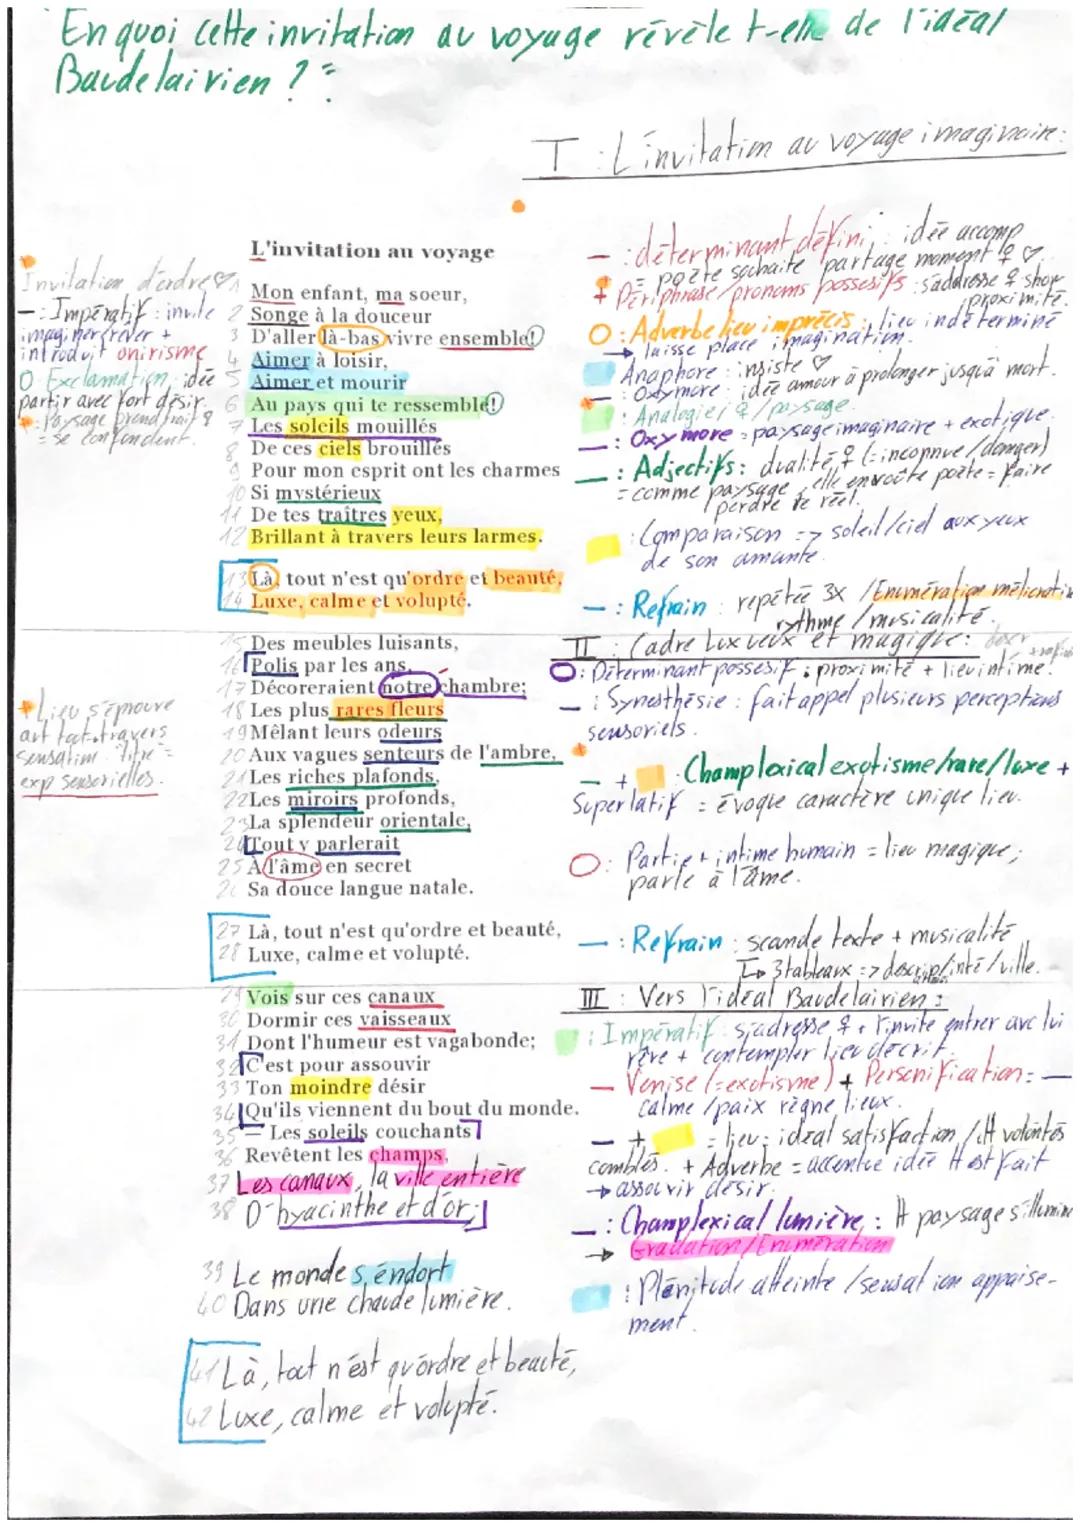 En quoi cette invitation au voyage révèle t-elle de l'idéal
Baudelairien ?
I : L'invitation au voyage imaginaire:
L'invitation au voyage
1 Mon enfant, ma soeur,
2 Songe à la douceur
3 D'aller là-bas vivre ensemble!
4 Aimer à loisir,
5 Aimer et mourir
6 Au pays qui te ressemble!
7 Les soleils mouillés
8 De ces ciels brouillés
9 Pour mon esprit ont les charmes
10 Si mystérieux
11 De tes traîtres yeux,
12 Brillant à travers leurs larmes.
13 Là, tout n'est qu'ordre et beauté,
14 Luxe, calme et volupté.
Invitation d'ordre ♡
- : Impératif : invite
imaginer/rêver +
introduit onirisme
O Exclamation : idée
partir avec fort désir.
: Paysage prend trait ♀
= se confondent.
- : déterminant défini : idée accomp
= poète souhaite partage moment ♀ ♡.
+ Périphrase/pronoms possesifs : s'addresse ♀
proximité.
O : Adverbe lieu imprécis : lieu indéterminé
→ laisse place imagination.
: Anaphore : insiste ♡
: Oxymore : idée amour à prolonger jusqu'à mort.
: Analogie : ♀/paysage.
- : Oxymore : paysage imaginaire + exotique.
- : Adjectifs : dualité ♀ (= inconnue/danger)
= comme paysage, elle envoûte poète = faire
perdre le réel.
: Comparaison => soleil/ciel aux yeux
de son amante.
- : Refrain : repétée 3x /Enumération méliorative
rythme/musicalité.
II : Cadre luxueux et magique:
15 Des meubles luisants,
16 Polis par les ans,
17 Décoreraient notre chambre;
18 Les plus rares fleurs
19 Mêlant leurs odeurs
20 Aux vagues senteurs de l'ambre,
21 Les riches plafonds,
22 Les miroirs profonds,
23 La splendeur orientale,
24 Tout y parlerait
25 À l'âme en secret
26 Sa douce langue natale.
27 Là, tout n'est qu'ordre et beauté,
28 Luxe, calme et volupté.
Lieu s'éprouve
à travers
sensation
exp sensorielles.
O : Déterminant possesif : proximité + lieu intime.
- : Synesthésie : fait appel plusieurs perceptions
sensoriels.
- + : Champ lexical exotisme/rare/luxe +
Superlatif = évoque caractère unique lieu.
O : Partie + intime humain = lieu magique,
parle à l'âme.
- : Refrain : scande texte + musicalité
↳ 3 tableaux => descrip/inté/ville.
III : Vers l'idéal Baudelairien :
29 Vois sur ces canaux
30 Dormir ces vaisseaux
31 Dont l'humeur est vagabonde;
32 C'est pour assouvir
33 Ton moindre désir
34 Qu'ils viennent du bout du monde.
35 – Les soleils couchants
36 Revêtent les champs,
37 Les canaux, la ville entière
38 D'hyacinthe et d'or;
39 Le monde s'endort
40 Dans une chaude lumière.
41 Là, tout n'est qu'ordre et beauté,
42 Luxe, calme et volupté.
: Impératif : s'adresse ♀ + l'invite entrer avc lui
rêve + contempler lieu décrit.
- Venise (= exotisme) + Personification : -
calme/paix règne lieux.
- + = lieu : idéal satisfaction / volontés
comblés. + Adverbe = accentue idée est fait
→ assouvir désir.
- : Champ lexical lumière : paysage s'illumine
→ Gradation/Enumération
: Plénitude atteinte /sensation appaise-
ment.